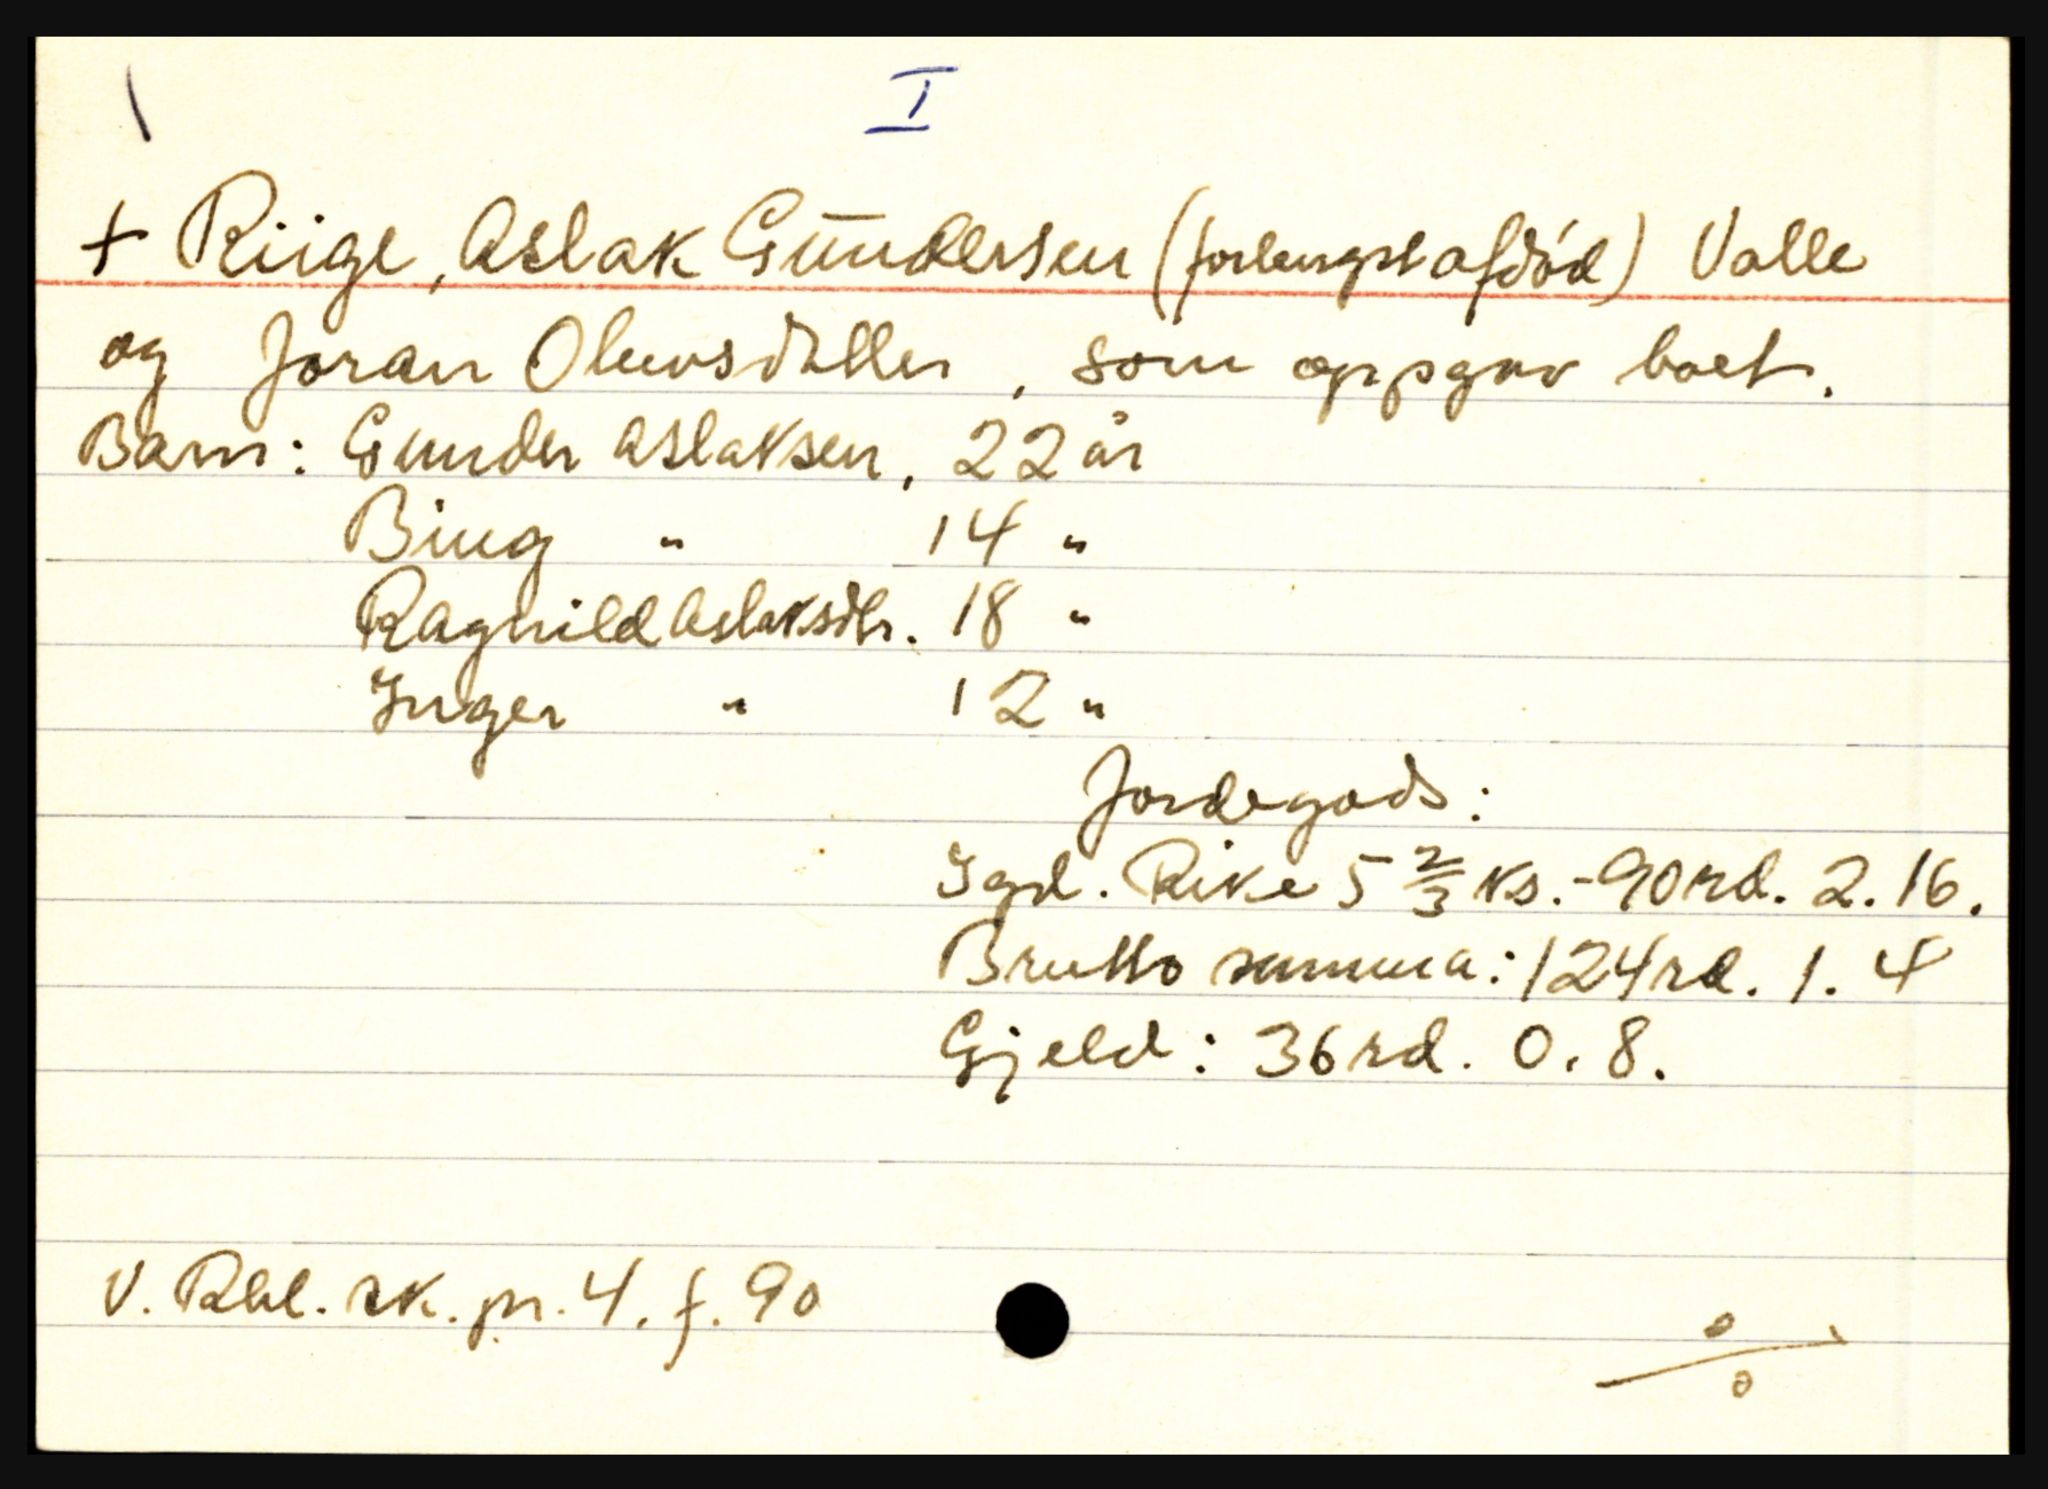 I
+ Riige, Aslak Gundersen (forlengst afdød) Valle
og Joran Oluvsdatter, som oppgav boet.
Barn: Gunder Aslaksen, 22 år
Biug " 14 "
Ragnild Aslaksdtr. 18 "
Inger " 12 "
Jordegods:
Jgd. Rike 5 2/3 ks. - 90 rd. 2. 16.
Brutto summa: 124 rd. 1. 4
Gjeld: 36 rd. 0. 8.
V. Rbl. sk. pr. 4. f. 90